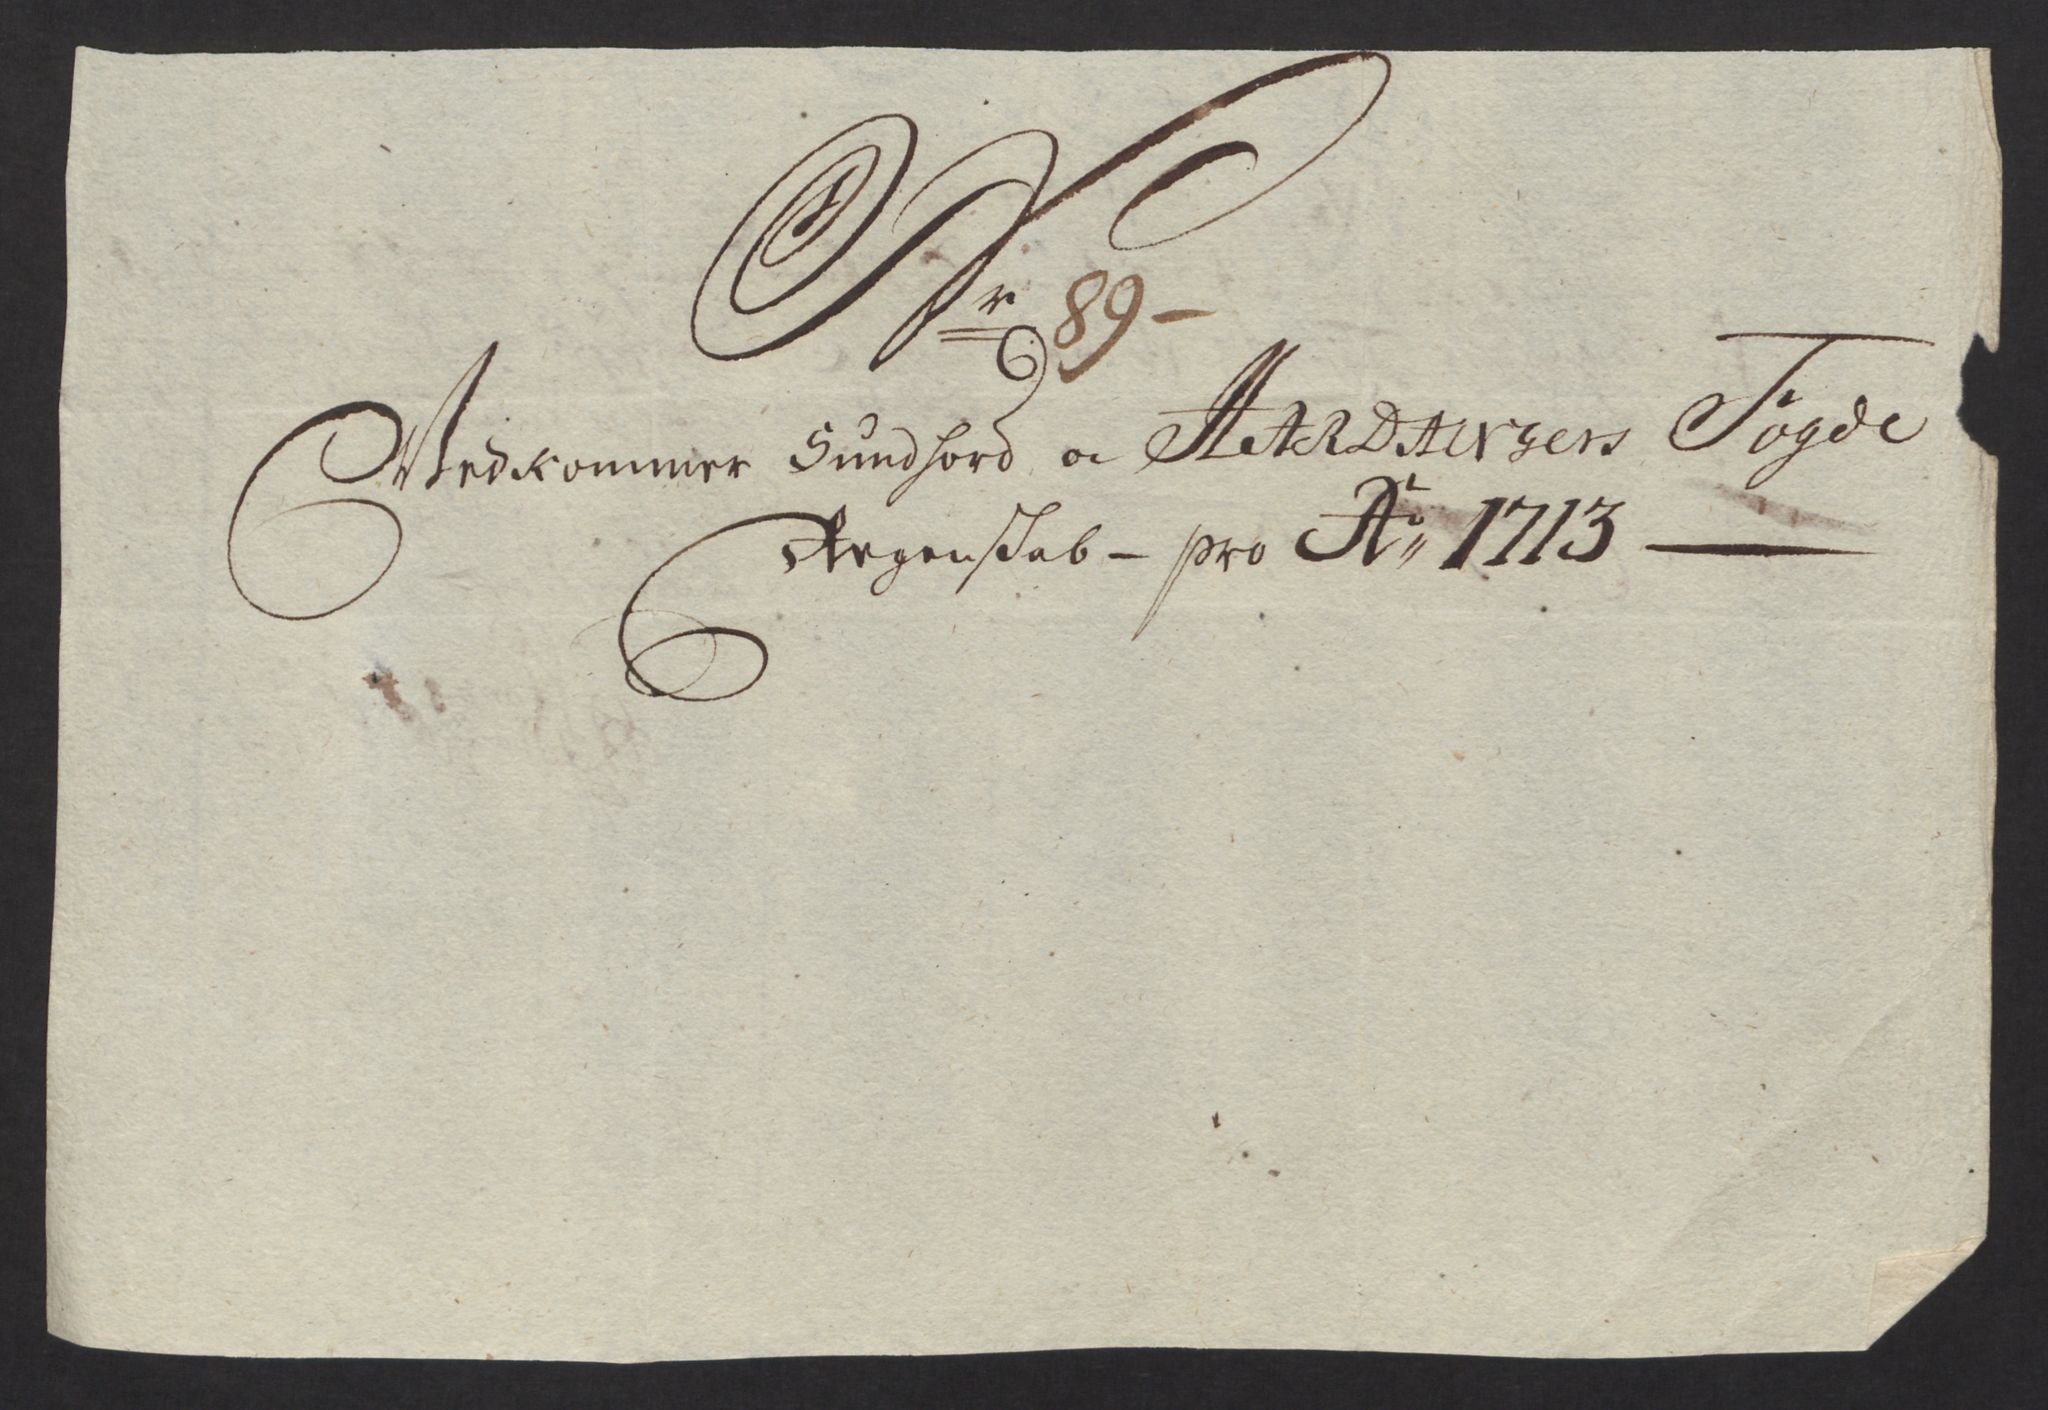 Nr 89 –
Vedkommer Sundhord oc HARDANgers Fogde
Regenskab – pro Ao 1713 —